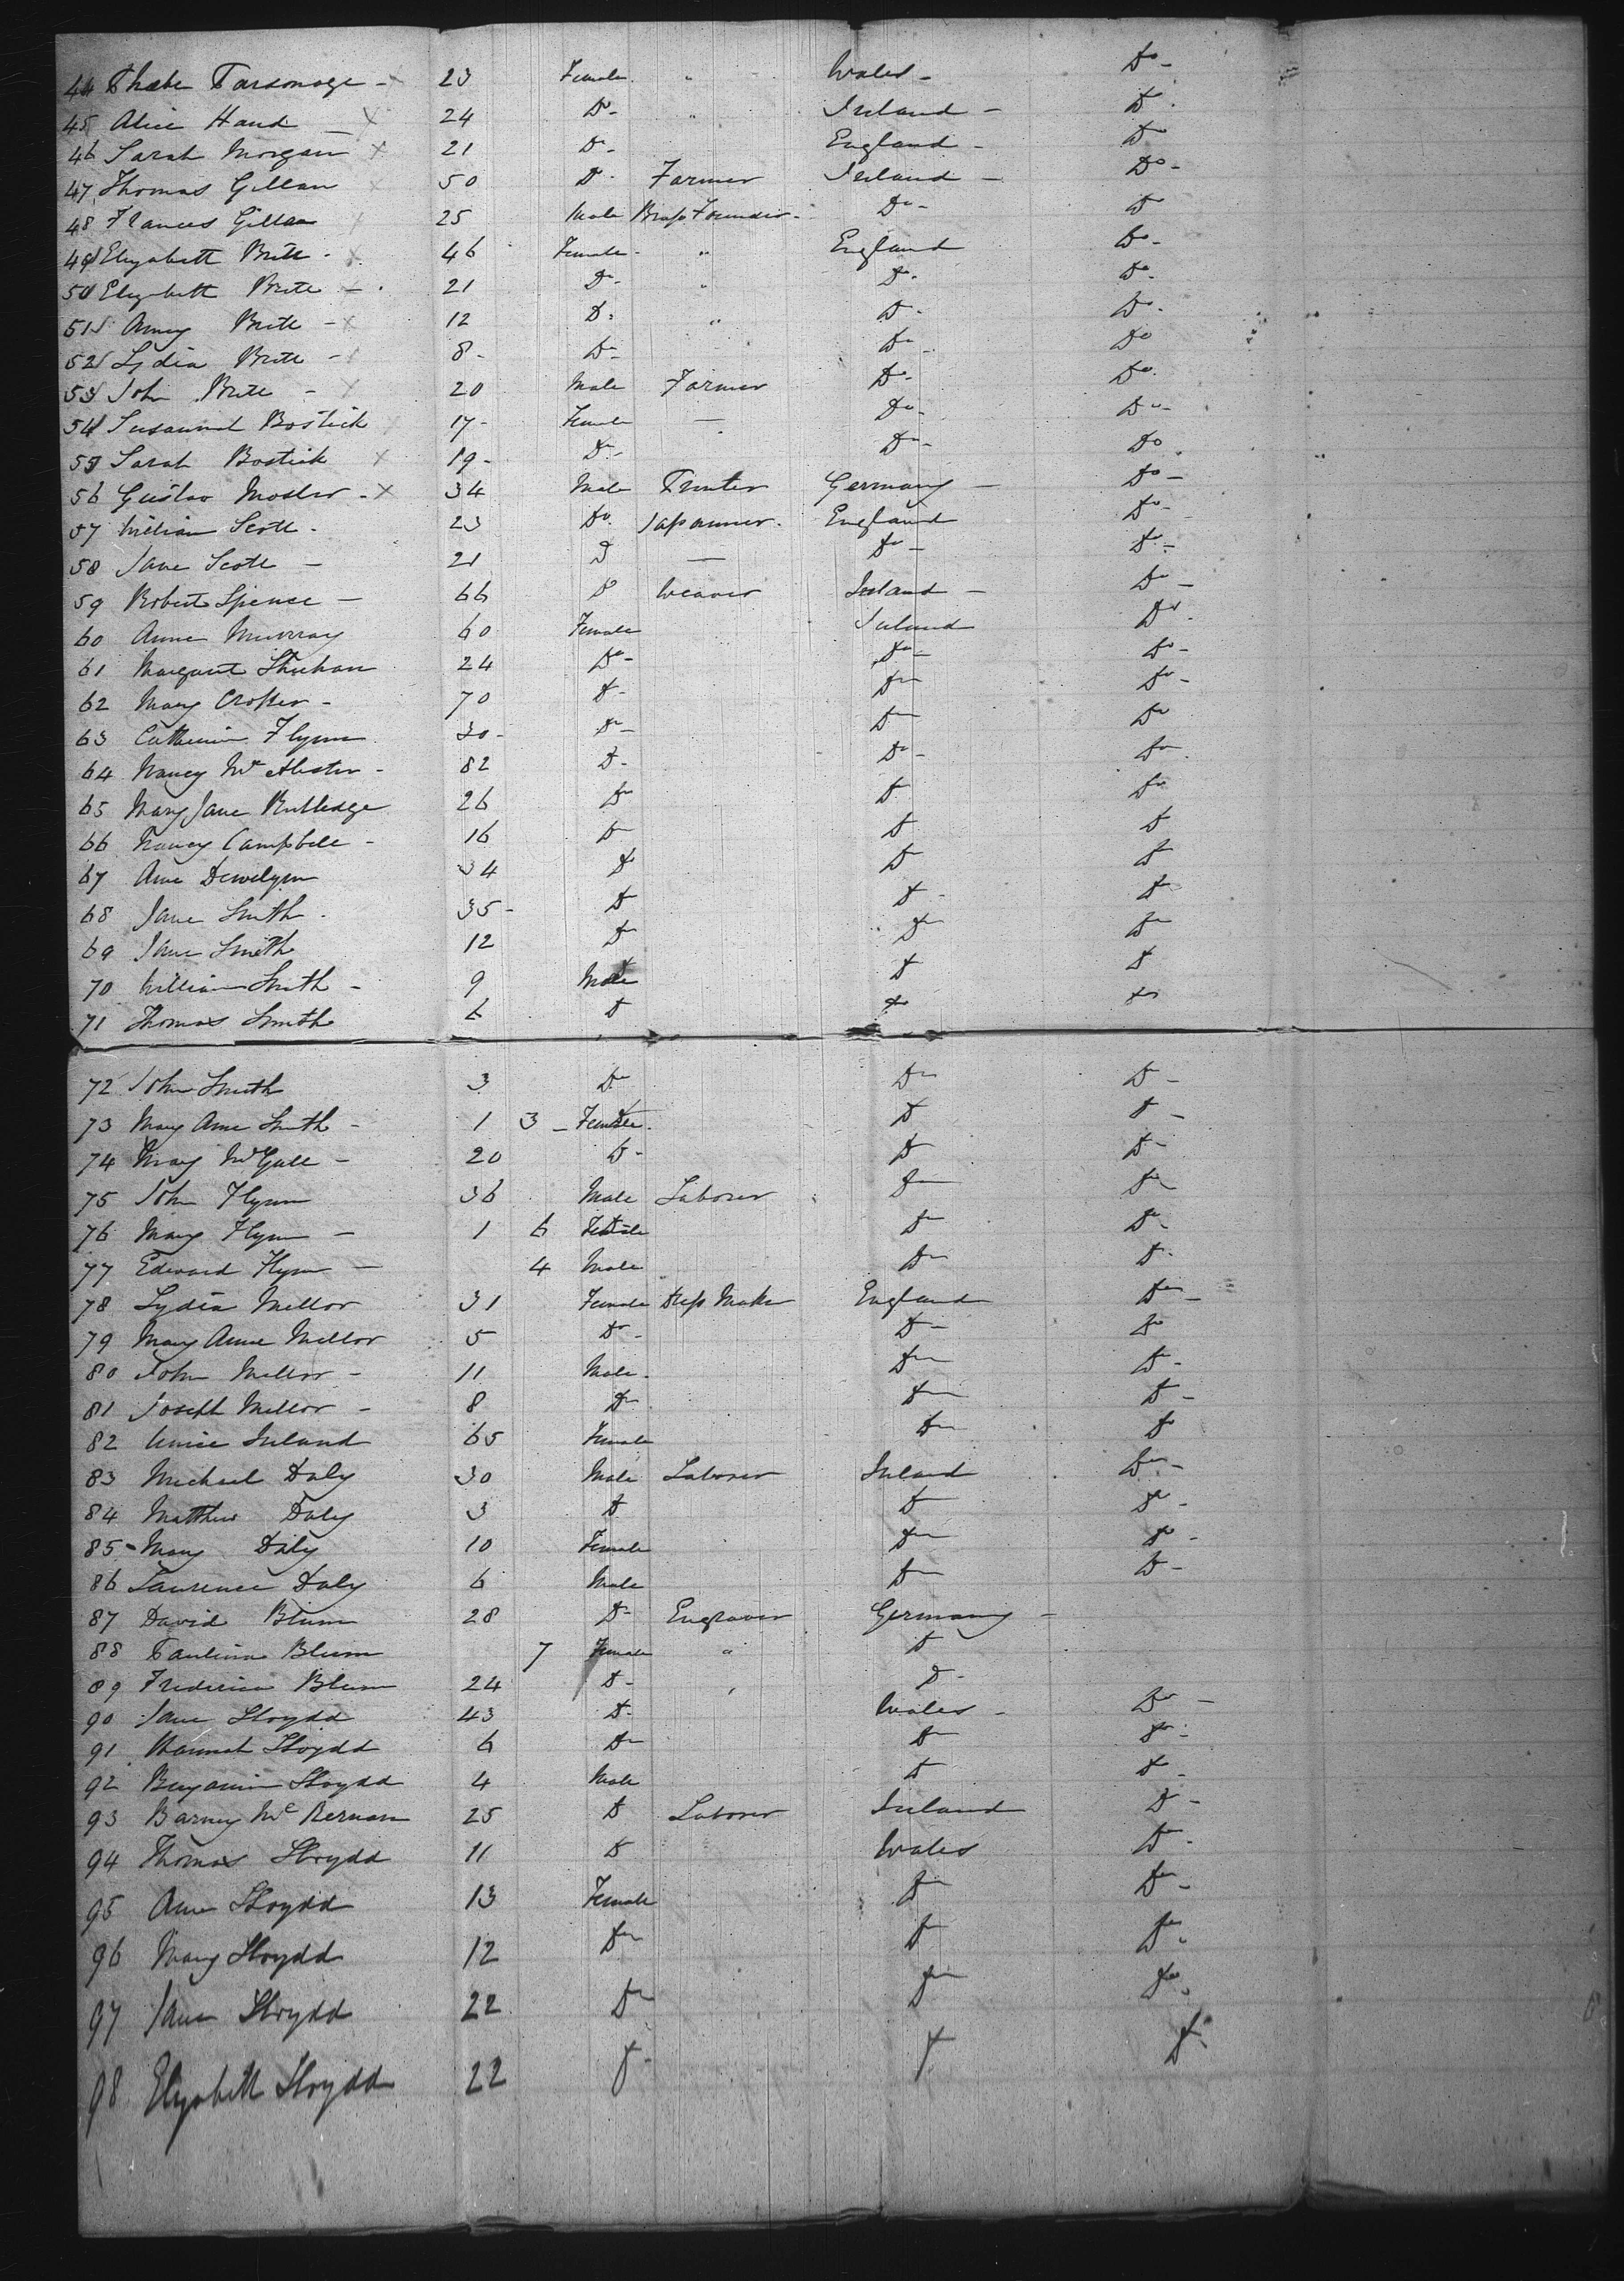 44 Phœbe Parsonage - 23 Female " Wales - Do -
45 Alice Hand - X 24 Do - " Ireland - Do
46 Sarah Morgan X 21 Do - England - Do
47 Thomas Gillan X 50 Do - Farmer Ireland - Do -
48 Frances Gillan 25 Male Brass Founder - Do - Do
49 Elizabeth Brite - X 46 Female - " England Do -
50 Elizabeth Brite - 21 Do - " Do - Do -
51 Amey Brite - X 12 Do - " Do - Do -
52 Lydia Brite - 8 - Do - Do - Do
53 John Brite - X 20 Male Farmer Do - Do -
54 Susannah Bostick X 17 - Female — Do - Do -
55 Sarah Bostick X 19 - Do - Do - Do
56 Gustav Mosler - X 34 Male Printer Germany - Do -
57 William Scott - 23 Do Japanner - England Do -
58 Jane Scott - 21 Do — Do - Do -
59 Robert Spence - 66 Do Weaver Ireland - Do -
60 Anne Murray 60 Female Ireland Do -
61 Margaret Sheehan 24 Do - Do - Do -
62 Mary - 70 Do - Do Do -
63 Catherine Flynn 30 - Do - Do Do
64 Nancy Mc Alister - 82 Do - Do - Do
65 Mary Jane Rutledge 26 Do Do Do
66 Nancy Campbell - 16 Do Do Do
67 Ann 34 Do Do Do
68 Jane Smith - 35 - Do Do - Do
69 Jane Smith 12 Do Do Do
70 William Smith - 9 Male Do Do
71 Thomas Smith 6 Do Do Do
72 John Smith 3 Do Do Do -
73 Mary Anne Smith - 1 3 - Female - Do Do -
74 Mary - 20 Do - Do Do -
75 John Flynn 36 Male Laborer Do Do
76 Mary Flynn - 1 6 Female Do Do -
77 Edward Flynn - 4 Male Do Do -
78 Lydia Mellor 31 Female Dress Maker England Do -
79 Mary Anne Mellor 5 Do - Do - Do
80 John Mellor - 11 Male - Do Do -
81 Joseph Mellor - 8 Do Do Do -
82 Ireland 65 Female Do Do
83 Michael Daly 30 Male Laborer Ireland Do -
84 Matthew Daly 3 Do Do Do -
85 - Mary Daly 10 Female Do Do -
86 Laurence Daly 6 Male Do Do -
87 David Blum 28 Do - Engraver Germany -
88 Paulina Blum 7 Female " Do
89 Frederica Blum 24 Do - " Do -
90 Jane Lloydd 43 Do - Wales - Do -
91 Hannah Lloydd 6 Do Do Do -
92 Benjamin Lloydd 4 Male Do Do -
93 Barney Mc Kernan 25 Do Laborer Ireland Do -
94 Thomas Lloydd 11 Do Wales Do -
95 Ann Lloydd 13 Female Do Do -
96 Mary Lloydd 12 Do Do Do -
97 Jane Lloydd 22 Do Do Do -
98 Elizabeth Lloydd 22 Do - Do Do